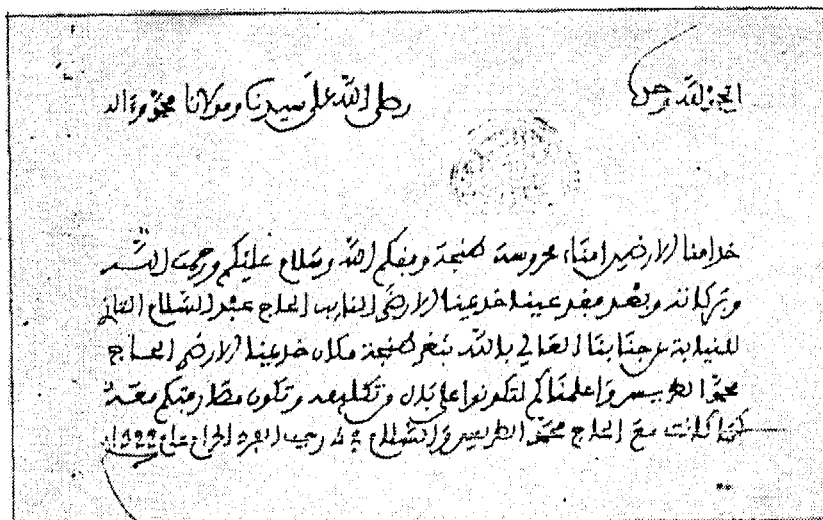 الحمد لله وحده وصلى الله على سيدنا ومولانا محمد وءاله
خدامنا الارضين امناء محروسة طنجة وفقكم الله وسلام عليكم ورحمت الله
وبركاته وبعد فقد عينا خديمنا الارضى النايب الحاج عبد السلام التازي
للنيابة عن جنابنا العالي بالله بثغر طنجة مكان خديمنا الارضى الحاج
محمد الطريس واعلمناكم لتكونوا على بال من تكليفه وتكون مفاوضتكم معه
كما كانت مع الحاج محمد الطريس والسلام في رجب الفرد الحرام عام